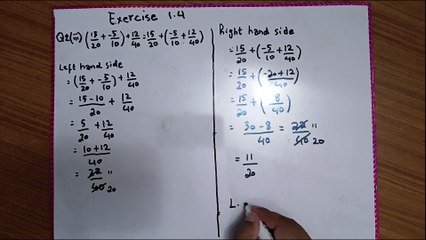 Exercise 1.4
Q2(iii) (15/20 + -5/10) + 12/40 = 15/20 + (-5/10 + 12/40)
Left hand side
= (15/20 + -5/10) + 12/40
= 15-10/20 + 12/40
= 5/20 + 12/40
= 10+12/40
= 22/40 11 20
Right hand side
= 15/20 + (-5/10 + 12/40)
= 15/20 + (-20+12/40)
= 15/20 + (8/40)
= 30-8/40 = 22/40 11 20
= 11/20
L.